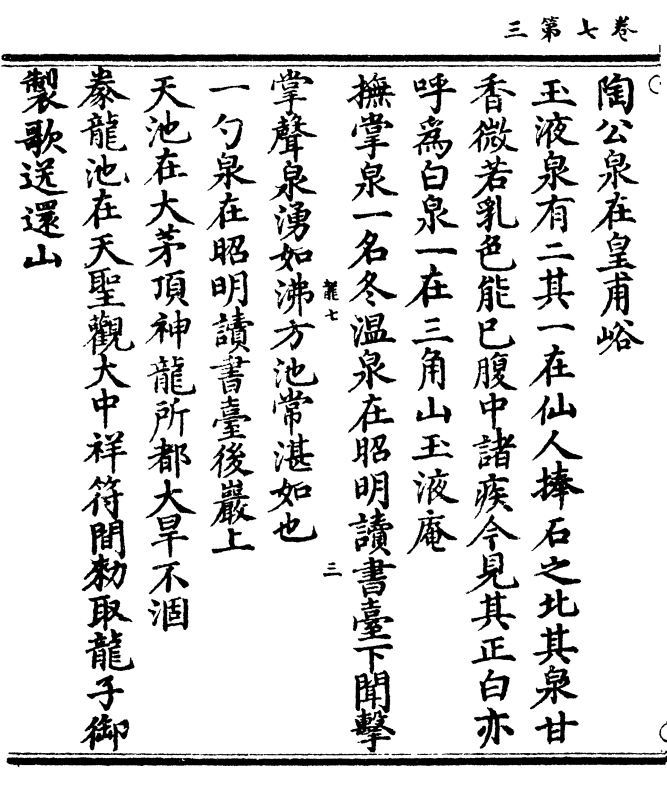 卷七第三
陶公泉在皇甫峪
玉液泉有二其一在仙人捧石之北其泉甘
香微若乳色能巳腹中諸疾今見其正白亦
呼爲白泉一在三角山玉液庵
撫掌泉一名冬温泉在昭明讀書臺下聞擊
龍七
三
掌聲泉湧如沸方池常湛如也
一勺泉在昭明讀書臺後巖上
天池在大茅頂神龍所都大旱不涸
豢龍池在天聖觀大中祥符間勑取龍子御
製歌送還山